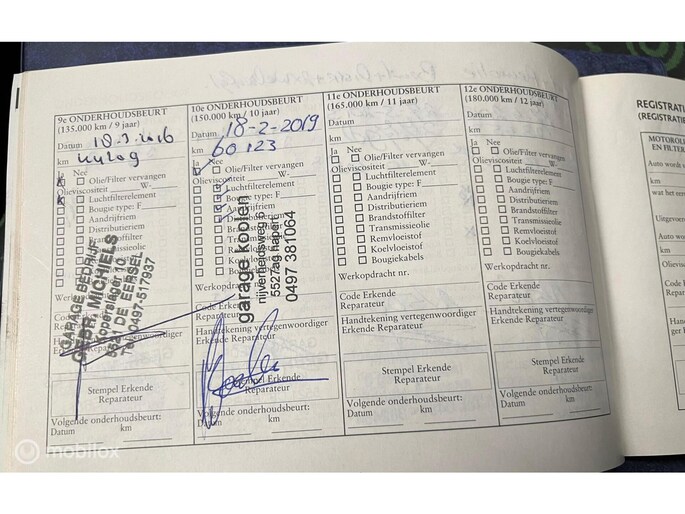 9e ONDERHOUDSBEURT
(135.000 km / 9 jaar)
Datum
km
Ja Nee
Olie/Filter vervangen
Olieviscositeit W-
Luchtfilterelement
Bougie type: F
Aandrijfriem
Distributieriem
Brandstoffilter
Transmissieolie
Werkopdracht nr.
Code Erkende
Reparateur
Handtekening vertegenwoordiger
Erkende Reparateur
Stempel Erkende
Reparateur
Volgende onderhoudsbeurt:
Datum km
GARAGE BEDRIJF
GEBR. MICHIELS
DE EERSEL
Tel. 0497-517937
10e ONDERHOUDSBEURT
(150.000 km / 10 jaar)
Datum 18-2-2019
km 60123
Ja Nee
Olie/Filter vervangen
Olieviscositeit W-
Luchtfilterelement
Bougie type: F
Aandrijfriem
Distributieriem
Werkopdracht nr.
Code Erkende
Reparateur
Handtekening vertegenwoordiger
Erkende Reparateur
Stempel Erkende
Reparateur
Volgende onderhoudsbeurt:
Datum km
garage koolen
nijverheidsweg 6
5527ag hapert
0497 381064
11e ONDERHOUDSBEURT
(165.000 km / 11 jaar)
Datum
km
Ja Nee
Olie/Filter vervangen
Olieviscositeit W-
Luchtfilterelement
Bougie type: F
Aandrijfriem
Distributieriem
Brandstoffilter
Transmissieolie
Remvloeistof
Koelvloeistof
Bougiekabels
Werkopdracht nr.
Code Erkende
Reparateur
Handtekening vertegenwoordiger
Erkende Reparateur
Stempel Erkende
Reparateur
Volgende onderhoudsbeurt:
Datum km
12e ONDERHOUDSBEURT
(180.000 km / 12 jaar)
Datum
km
Ja Nee
Olie/Filter vervangen
Olieviscositeit W-
Luchtfilterelement
Bougie type: F
Aandrijfriem
Distributieriem
Brandstoffilter
Transmissieolie
Remvloeistof
Koelvloeistof
Bougiekabels
Werkopdracht nr.
Code Erkende
Reparateur
Handtekening vertegenwoordiger
Erkende Reparateur
Stempel Erkende
Reparateur
Volgende onderhoudsbeurt:
Datum km
REGISTRATI
(REGISTRATIE
MOTOROLI
EN FILTER
Auto wordt
km
Uitgevoer
Auto wor
km
mobilox